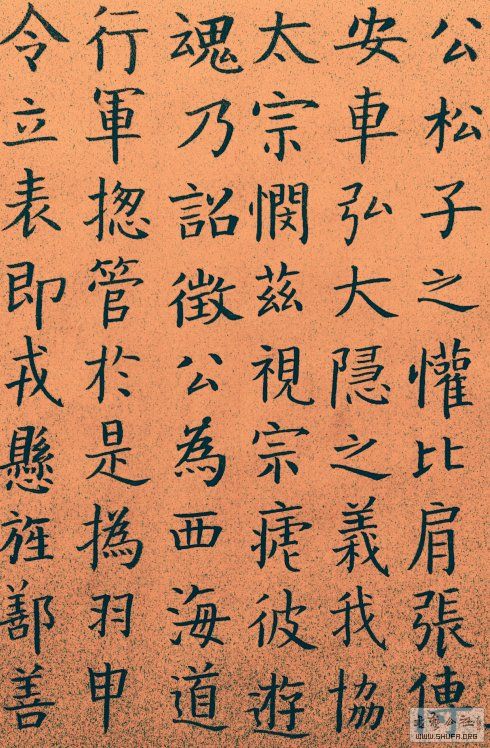 公松子之懽比肩張
安車弘大隱之義我協
太宗憫茲視宗彼遊
魂乃詔徵公為西海道
行軍揔管於是撝羽申
令立表即戎懸旌鄯善
WWW.SHUFA.ORG